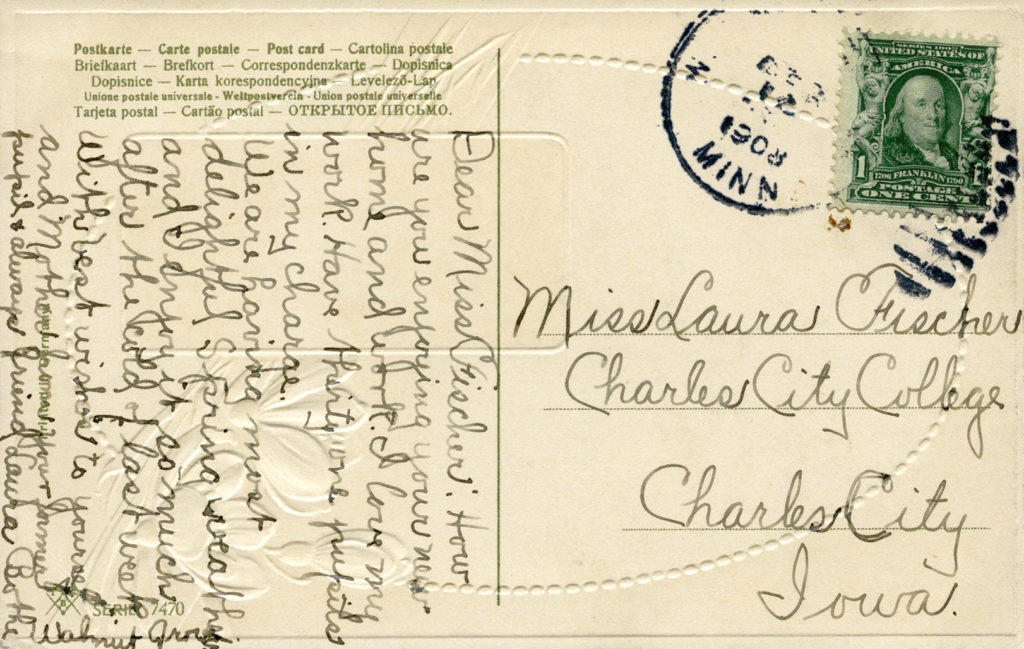 Postkarte — Carte postale — Post card — Cartolina postale
Briefkaart — Brefkort — Correspondenzkarte — Dopisnica
Dopisnice — Karta korespondencyjna — Levelező-Lap
Unione postale universale - Weltpostverein - Union postale universelle
Tarjeta postal — Cartão postal — ОТКРЫТОЕ ПИСЬМО.
Dear Miss Fischer: How
are you enjoying your new
home and work. I love my
work. Have thirty one pupils
in my charge.
We are having most
delightful Spring weather
and I enjoy it so much
after the cold of last week
With best wishes to yourself
and Mother from your former
pupil & always friend Laura
Walnut Grove
SERIE 7470
1908
MINN
SERIES 1902
UNITED STATES OF
AMERICA
1
1706 FRANKLIN 1790
POSTAGE
ONE CENT
Miss Laura Fischer
Charles City College
Charles City
Iowa.